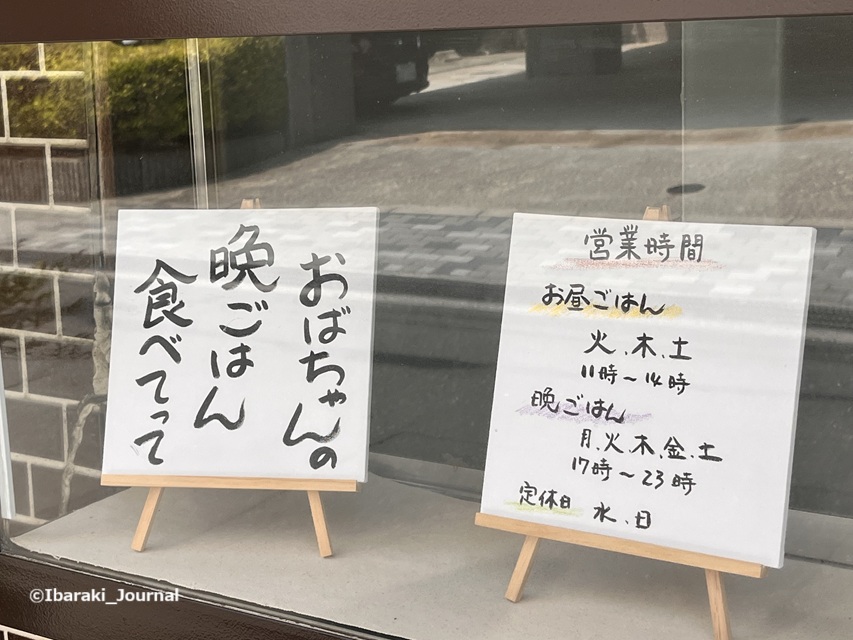 おばちゃんの
晩ごはん
食べてって
営業時間
お昼ごはん
火、木、土
11時～14時
晩ごはん
月、火、木、金、土
17時～23時
定休日 水、日
©Ibaraki_Journal